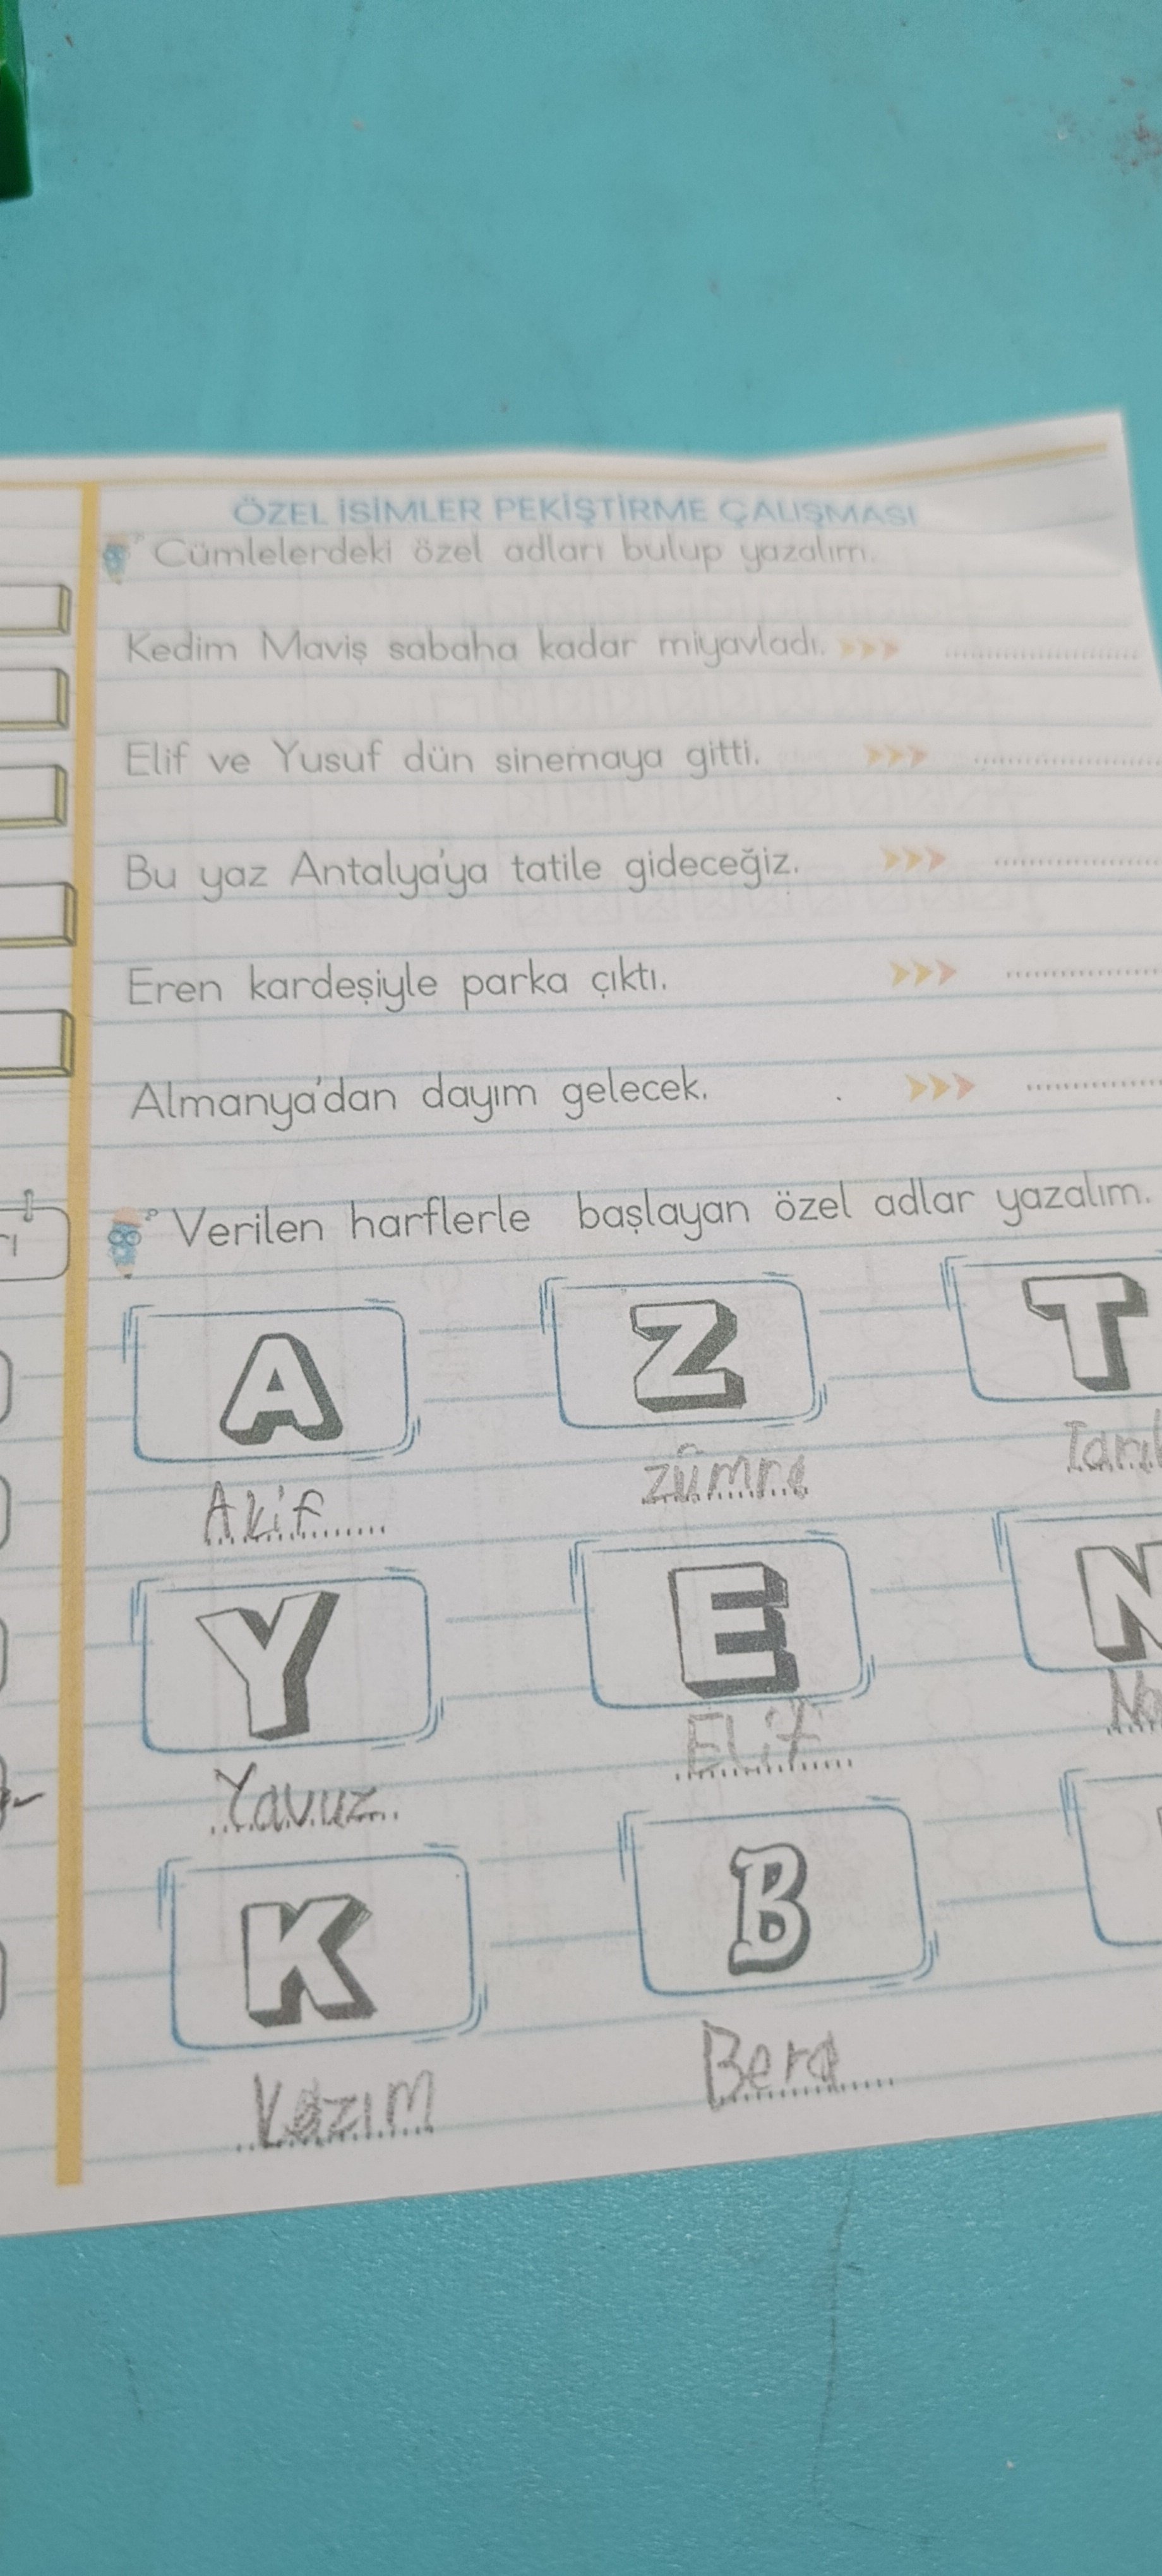 ÖZEL İSİMLER PEKİŞTİRME ÇALIŞMASI
Cümlelerdeki özel adları bulup yazalım.
Kedim Maviş sabaha kadar miyavladı.
Elif ve Yusuf dün sinemaya gitti.
Bu yaz Antalya'ya tatile gideceğiz.
Eren kardeşiyle parka çıktı.
Almanya'dan dayım gelecek.
Verilen harflerle başlayan özel adlar yazalım.
A Z T
Akif zümre
Y E N
Yavuz Elif
K B
Kazım Bera